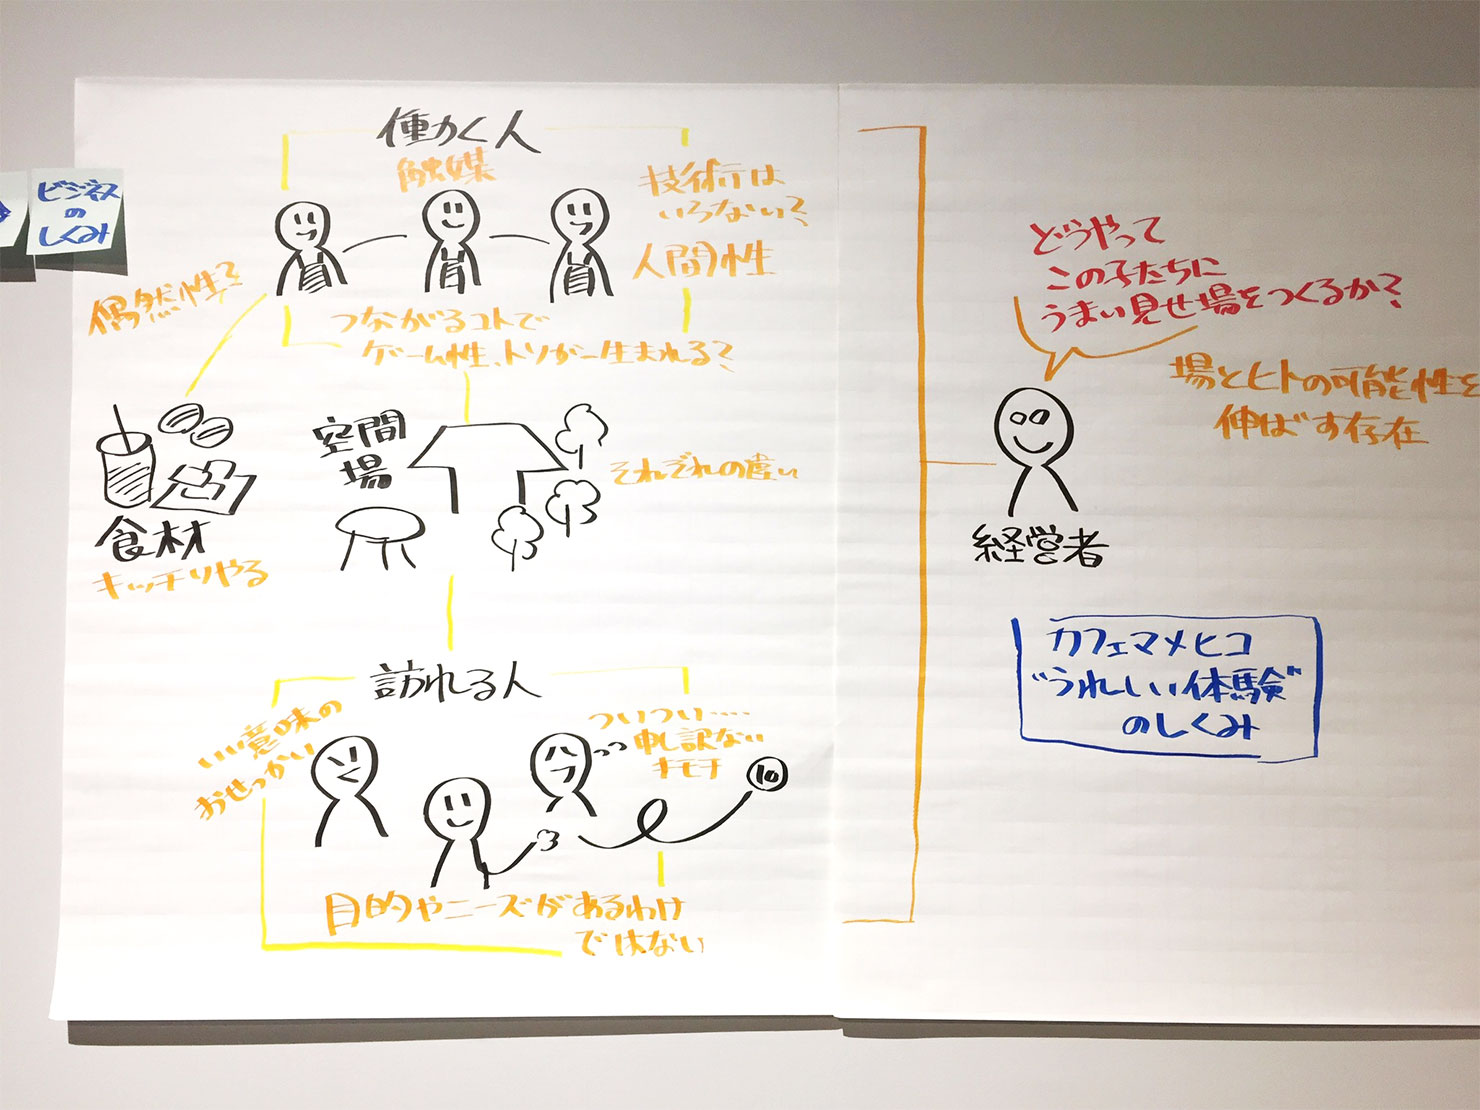 ビジネス
の
しくみ
働く人
触媒
技術はいらない?
人間性
偶然性?
つながるコトで
ゲーム性、ドラマが生まれる?
空間
場
それぞれの違い
食材
キッチリやる
訪れる人
いい意味の
おせっかい
ついつい‥‥
申し訳ない
キモチ
10
目的やニーズがあるわけ
ではない
どうやって
この子たちに
うまい見せ場をつくるか?
場とヒトの可能性を
伸ばす存在
経営者
カフェマメヒコ
"うれしい体験"
のしくみ